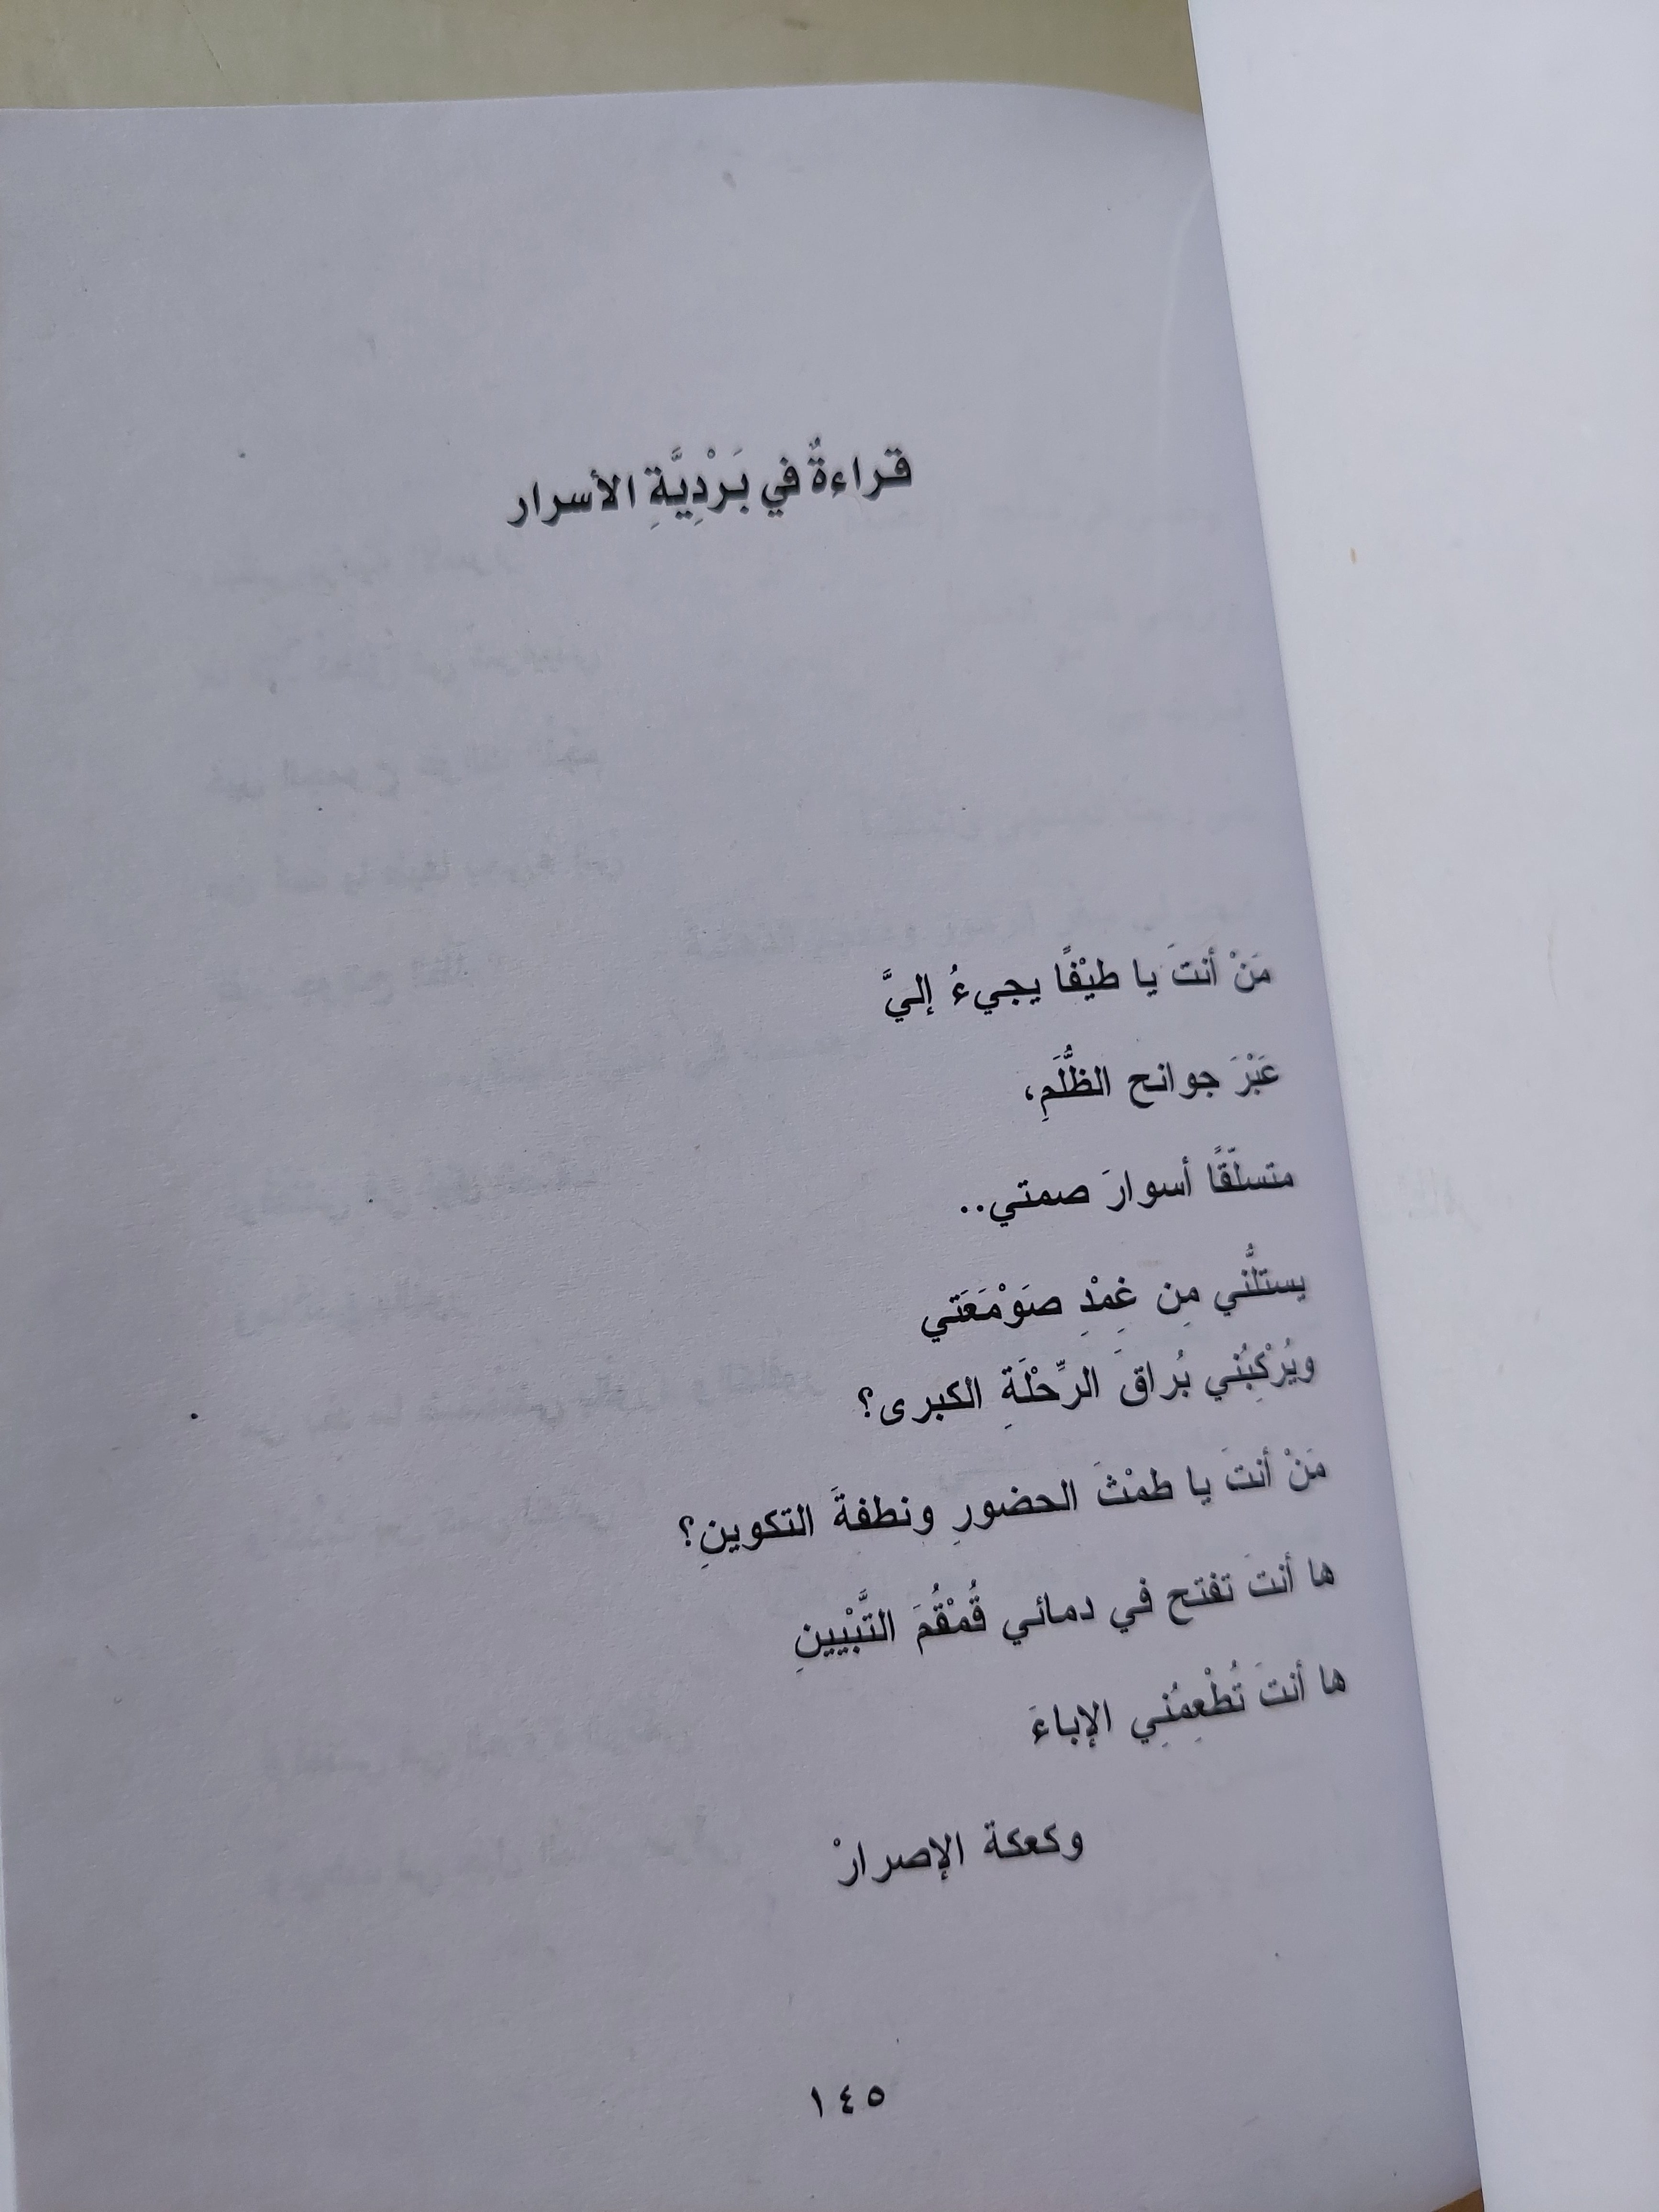 قراءةٌ في بَرْدِيَّةِ الأسرار
مَنْ أنتَ يا طيْفًا يجيءُ إليَّ
عَبْرَ جوانح الظُّلَمِ،
متسلّقًا أسوارَ صمتي..
يستلُّني مِن غِمْدِ صَوْمَعَتي
ويُرْكِبُني بُراقَ الرِّحْلَةِ الكبرى؟
مَنْ أنتَ يا طمْثَ الحضورِ ونطفةَ التكوينِ؟
ها أنتَ تفتح في دمائي قُمْقُمَ التَّبْيينِ
ها أنتَ تُطْعِمُنِي الإباءَ
وكعكة الإصرارْ
١٤٥